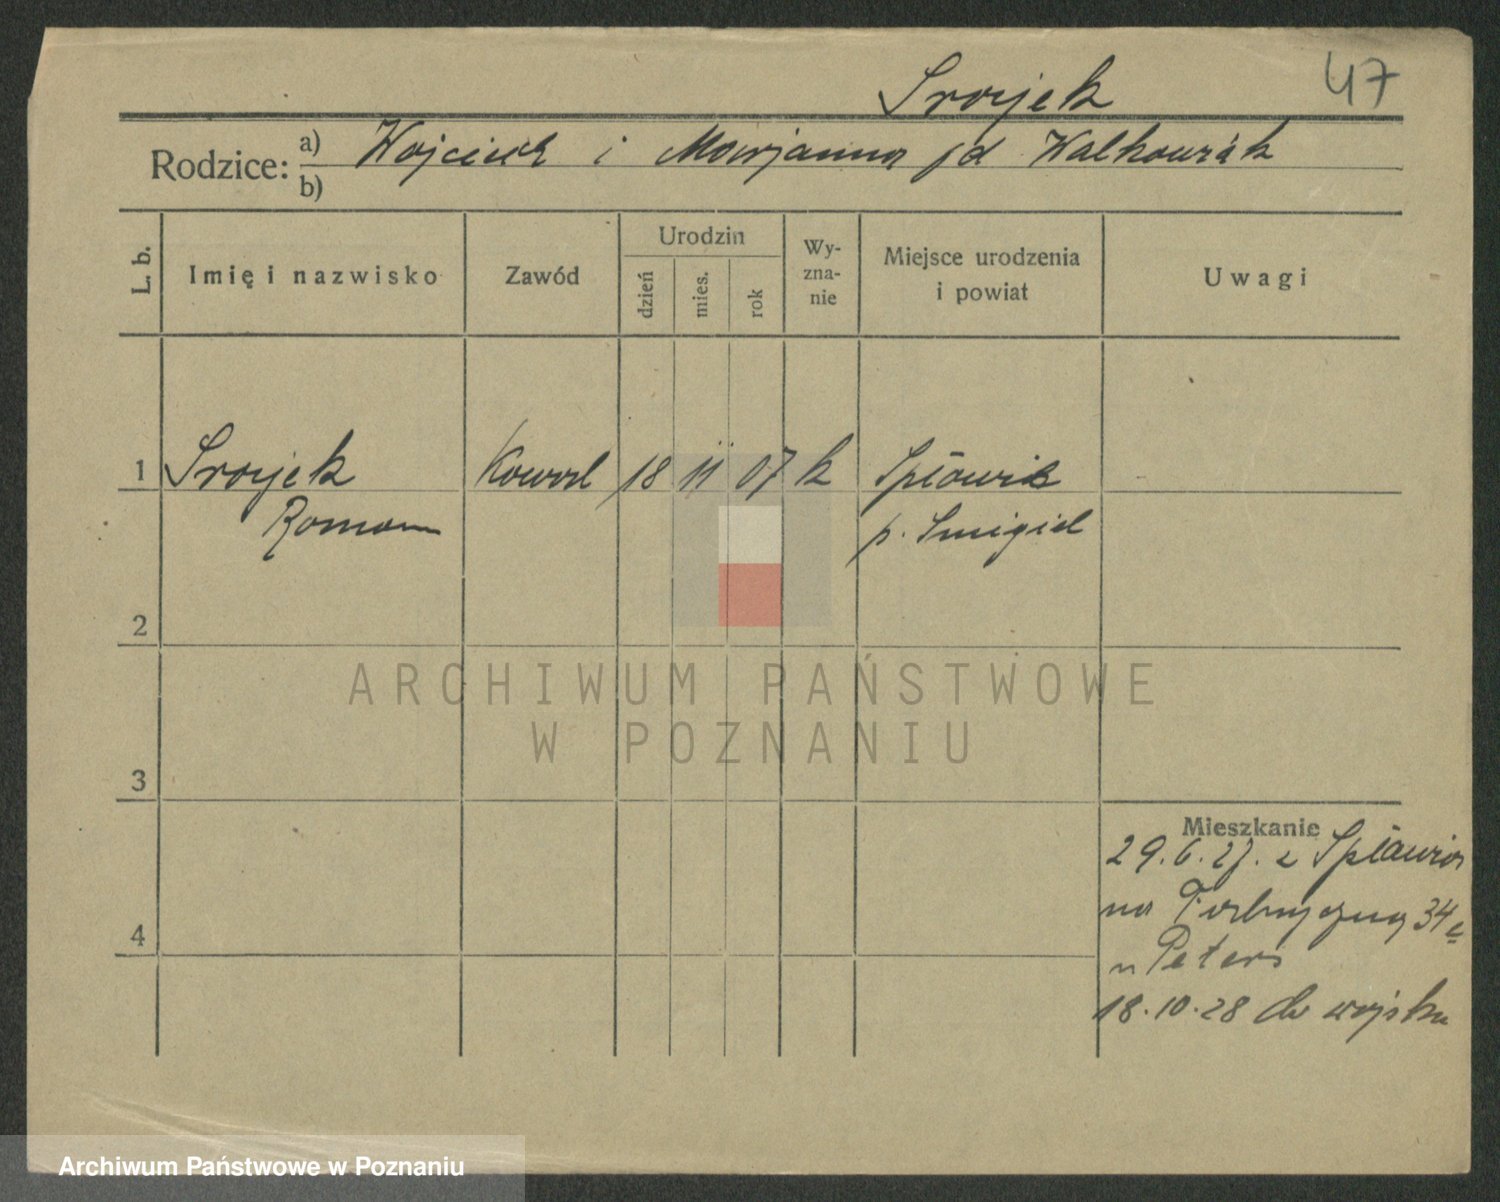 Srojek 47
Rodzice: a) Wojciech i Marjanna jd Walkowiak
b)
L. b. Imię i nazwisko Zawód Urodzin dzień mies. rok Wy-zna-nie Miejsce urodzenia i powiat Uwagi
1 Srojek Kowal 18 11 07 k Spławie
Roman p. Smigiel
2
3
Mieszkanie
29.6.27. z Spławia
na 34
4
u Peters
18.10.28 do wojska
ARCHIWUM PAŃSTWOWE
W POZNANIU
Archiwum Państwowe w Poznaniu